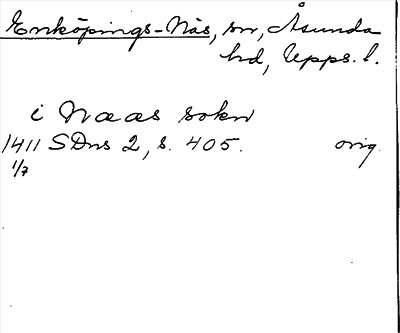 Enköpings-Näs, sn, Åsunda
hd, Upps. l.
i Naas sokn
1411 SDns 2, s. 405. orig.
1/7